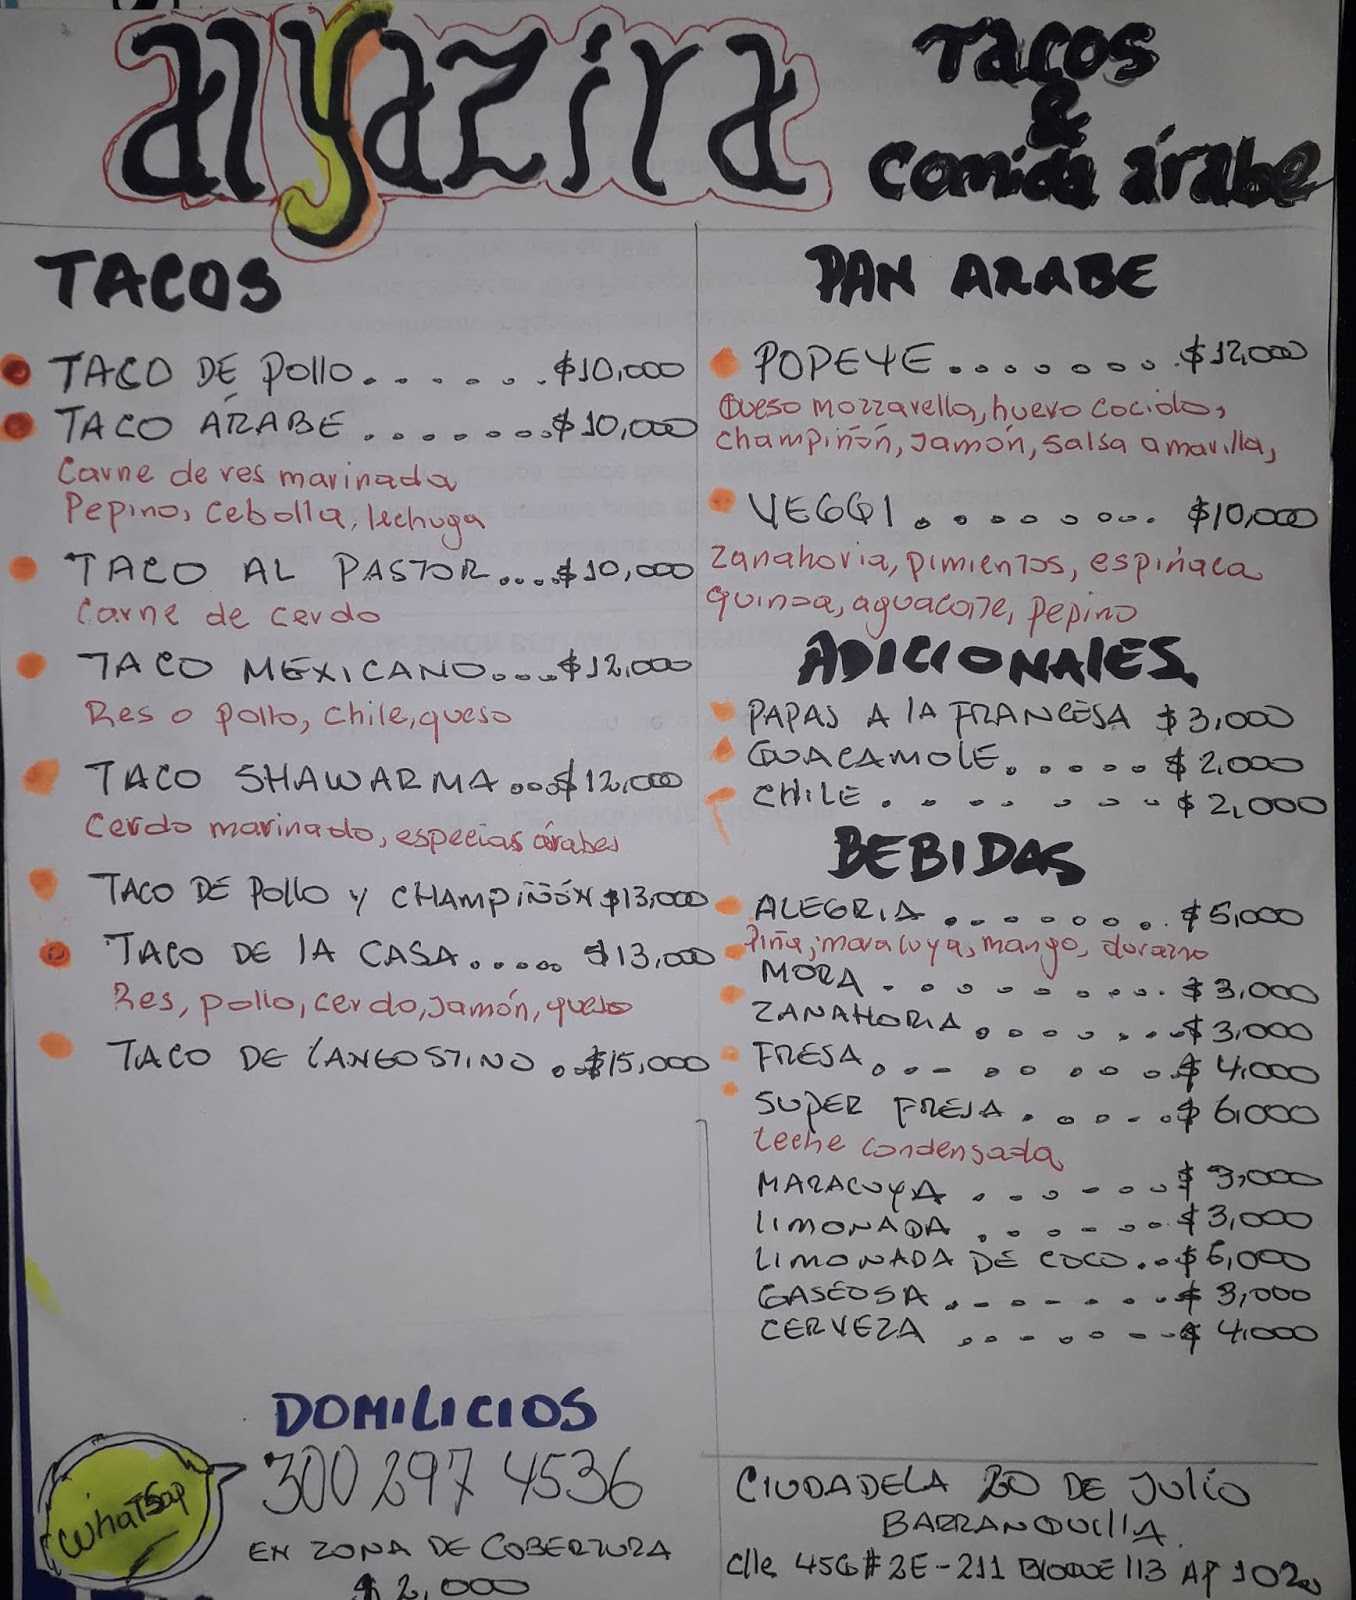 alyazira
Tacos
&
comida árabe
TACOS
TACO DE pollo....... $10,000
TACO ÁRABE ........ $10,000
Carne de res marinada
Pepino, cebolla, lechuga
TACO AL PASTOR.... $10,000
Carne de cerdo
TACO MEXICANO.... $12,000
Res o pollo, chile, queso
TACO SHAWARMA... $12,000
Cerdo marinado, especias árabes
TACO DE pollo y CHAMPIÑÓN $13,000
TACO DE lA CASA..... $13,000
Res, pollo, cerdo, Jamón, queso
TACO DE LANGOSTINO .. $15,000
PAN ARABE
POPEYE........ $12,000
Queso mozzarella, huevo cocido,
champiñón, Jamón, salsa amarilla,
VEGGI ........ $10,000
Zanahoria, pimientos, espinaca
quinoa, aguacate, pepino
ADICIONAlES
PAPAS A lA FRANCESA $3,000
GUACAMOLE..... $2,000
CHILE ........ $2,000
BEBIDAS
ALEGRIA ....... $5,000
Piña, maracuya, mango, durazno
MORA ......... $3,000
ZANAHORIA ....... $3,000
FRESA ........ $4,000
SUPER FRESA ..... $6,000
leche condensada
MARACUYA ...... $3,000
LIMONADA ...... $3,000
LIMONADA DE COCO.. $6,000
GASEOSA ....... $3,000
CERVEZA ....... $4,000
DOMILICIOS
Whatsap
300 297 4536
EN ZONA DE COBERTURA
$2,000
CIUDADELA 20 DE JuliO
BARRANQUIllA
Clle 45G # 2E-211 BlOQUE 113 AP 102